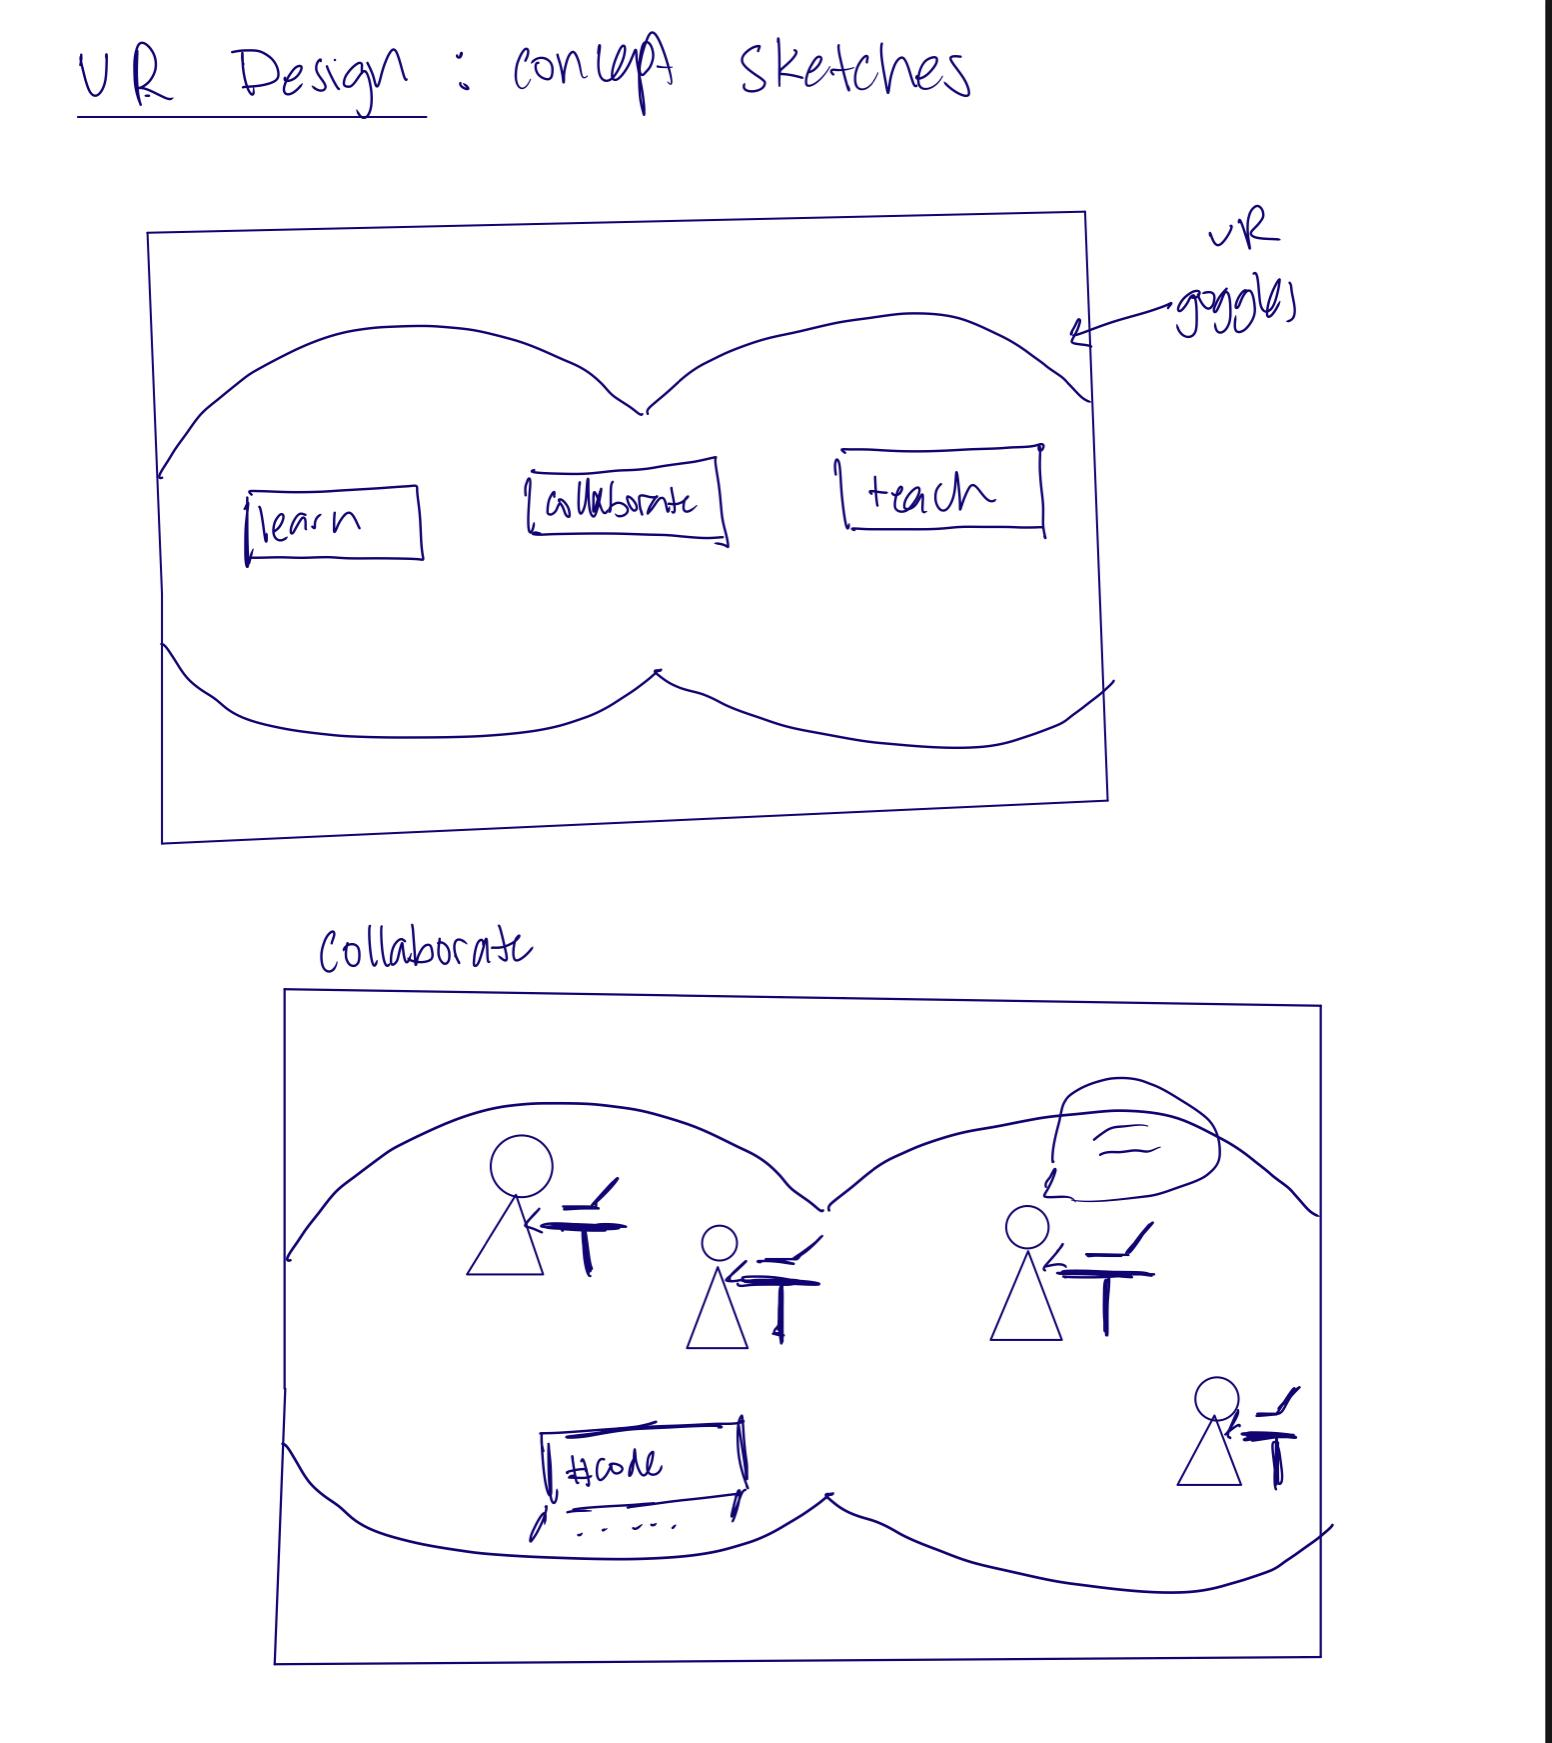 VR Design : concept sketches
VR
goggles
learn
collaborate
teach
collaborate
#code